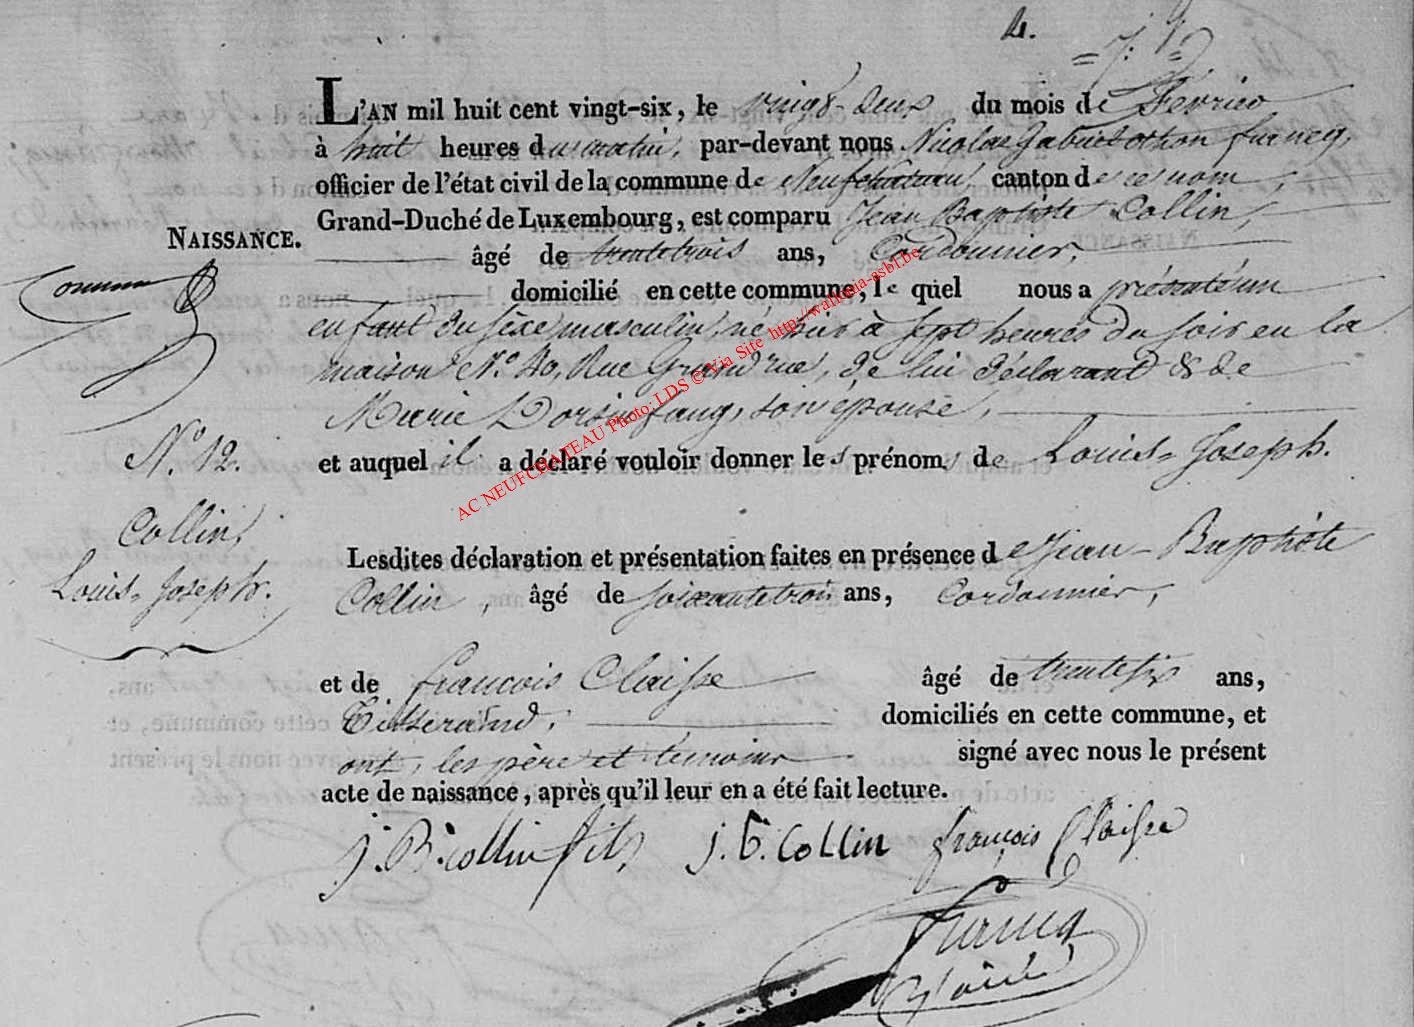 4.
L'AN mil huit cent vingt-six, le vingt-deux du mois de Fevrier
à huit heures du matin, par-devant nous Nicolas Gabriel othon furncq,
officier de l'état civil de la commune de Neufchateau, canton de ce nom,
Grand-Duché de Luxembourg, est comparu Jean Baptiste Collin,
NAISSANCE.
âgé de trente trois ans, Cordonnier,
Commune
domicilié en cette commune, le quel nous a présenté un
enfant du sèxe masculin, né hier à sept heures du soir en la
maison N.o 40, Rue Grand rue, de lui déclarant & de
Marie, son epouse,
N.o 12.
et auquel il a déclaré vouloir donner les prénoms de Louis-Joseph.
Collin,
Louis-Joseph.
Lesdites déclaration et présentation faites en présence de Jean-Baptiste
Collin, âgé de soixante trois ans, Cordonnier,
et de françois Claisse âgé de trente six ans,
Tisserand, domiciliés en cette commune, et
ont, les père et témoins signé avec nous le présent
acte de naissance, après qu'il leur en a été fait lecture.
j. B. collin fils j. b. Collin françois Claisse
furncq
AC NEUFCHATEAU Photo: LDS © Via Site http://wallonia-asbl.be